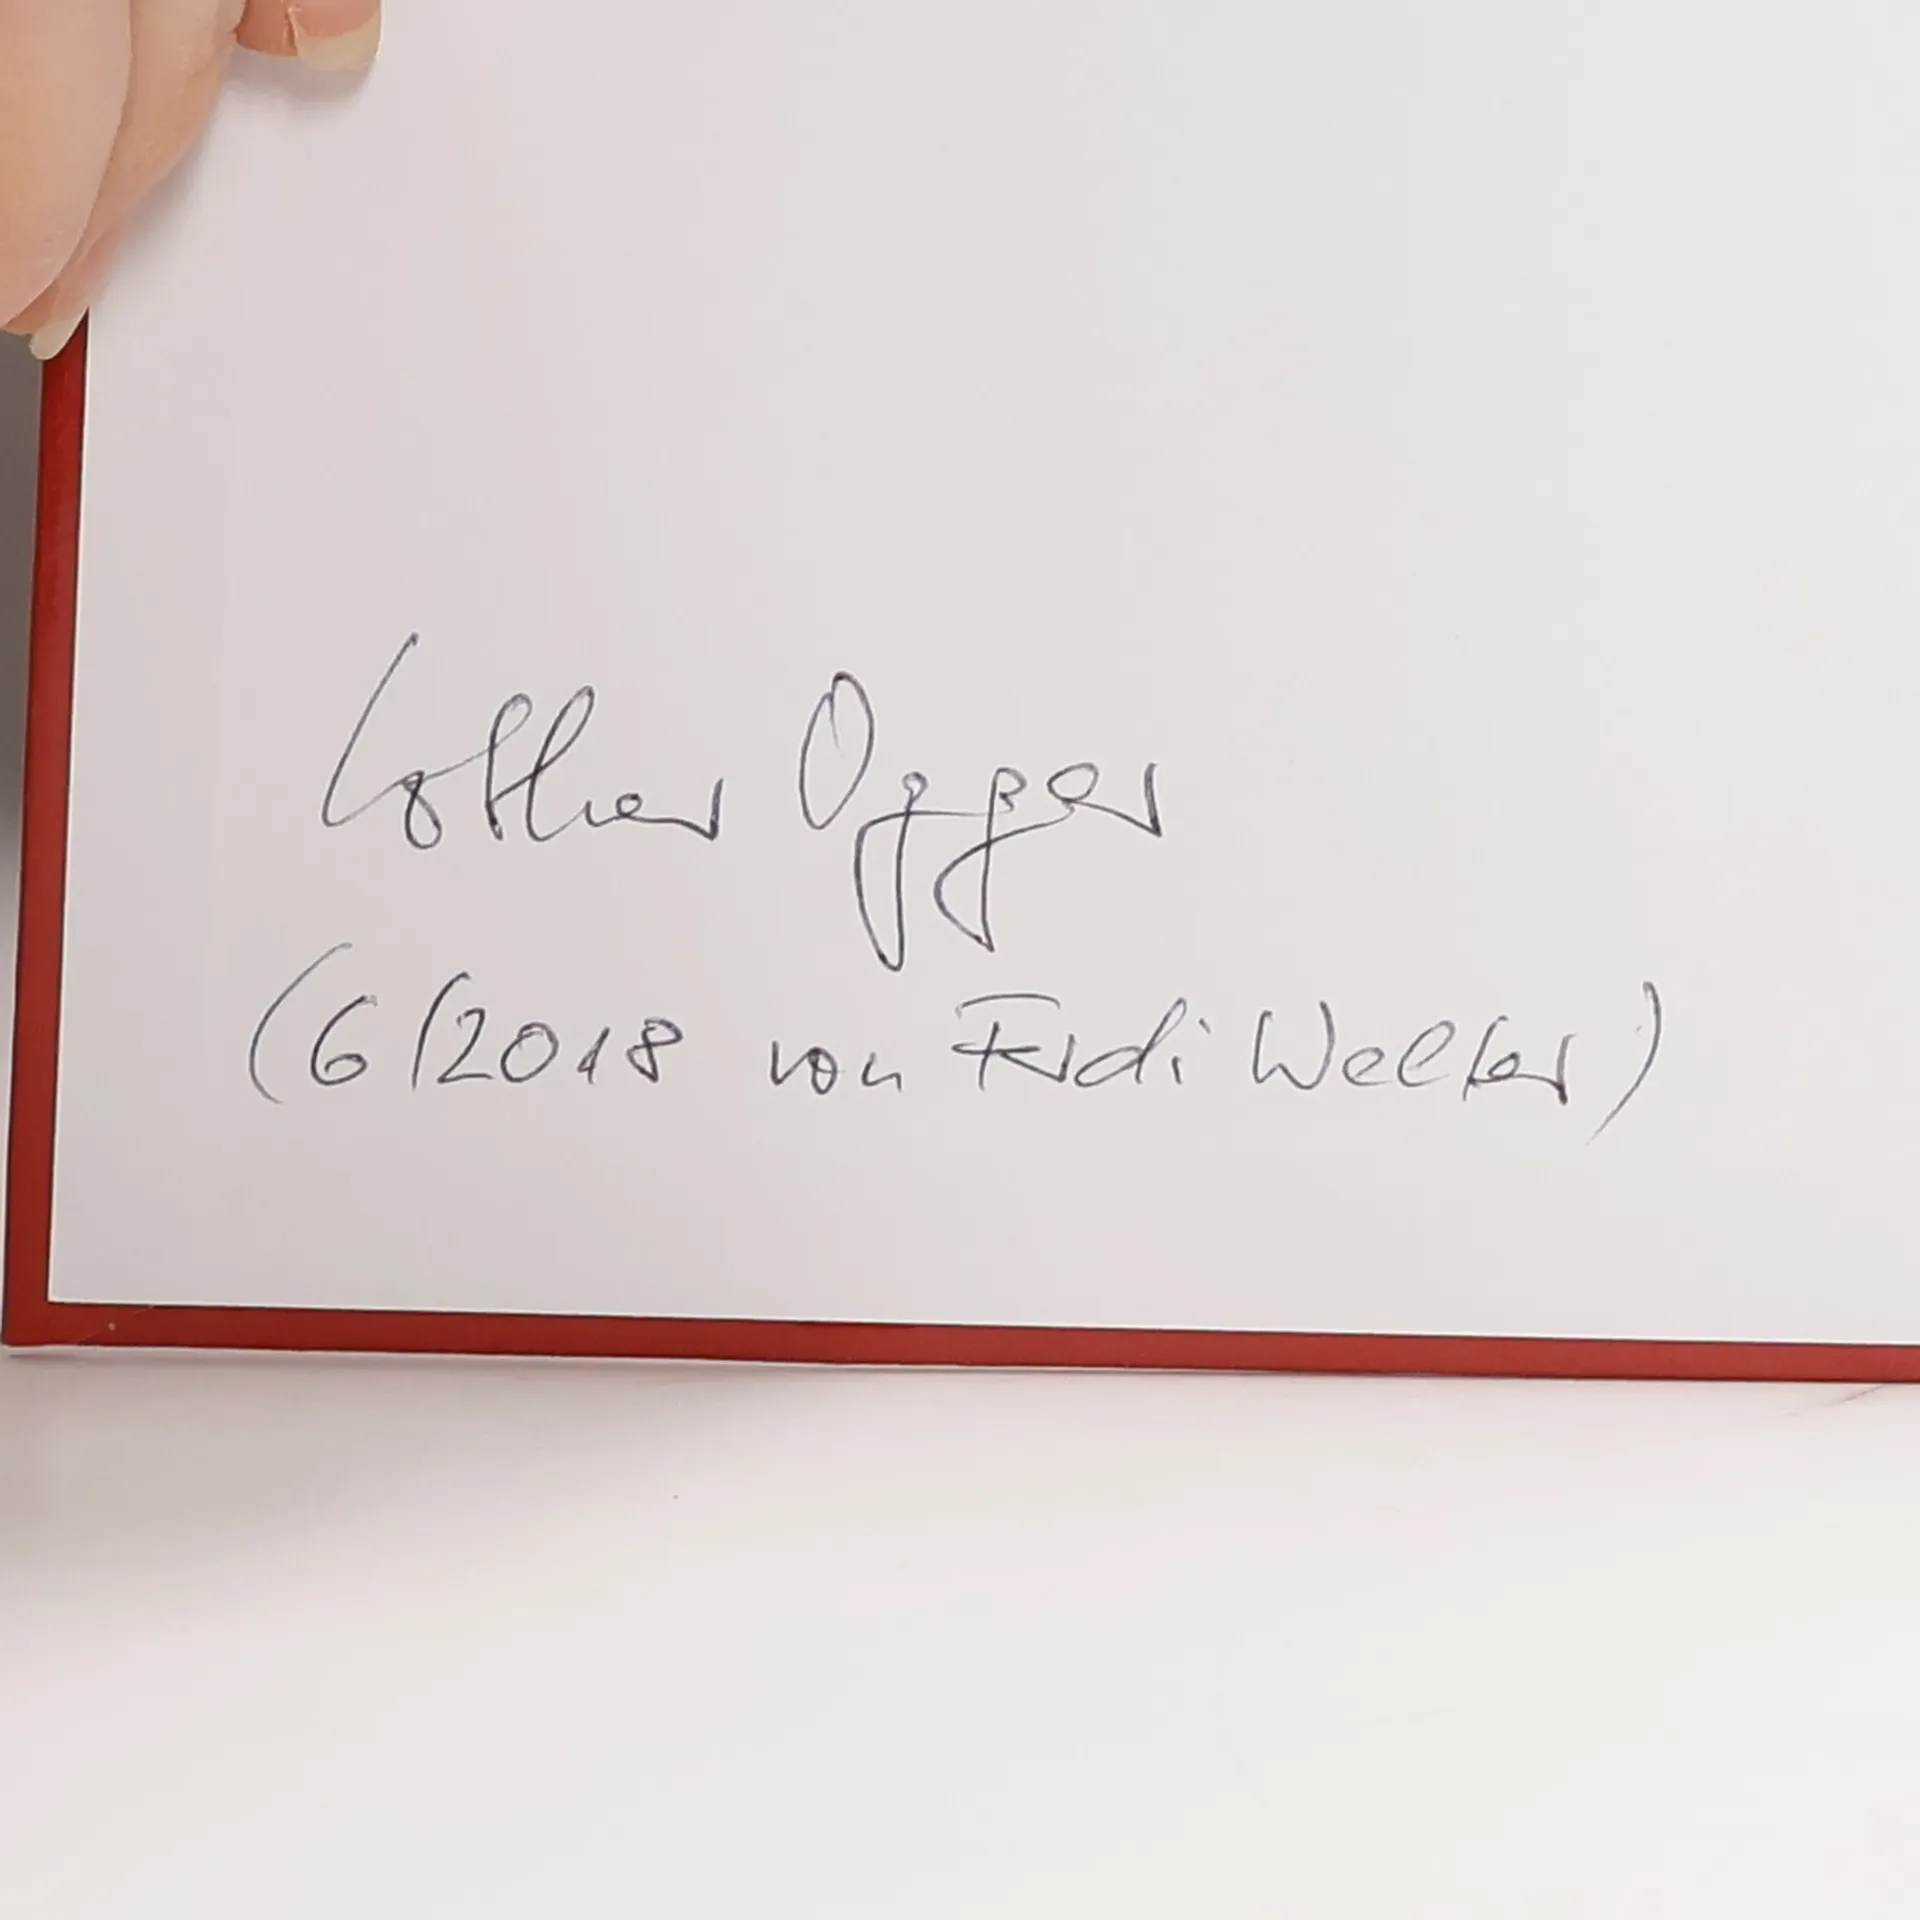 Lothar Ogger
(6/2018 von Ferdi Welter)